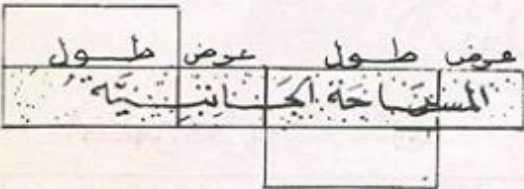 عرض طول عرض طول
المساحة الجانبية